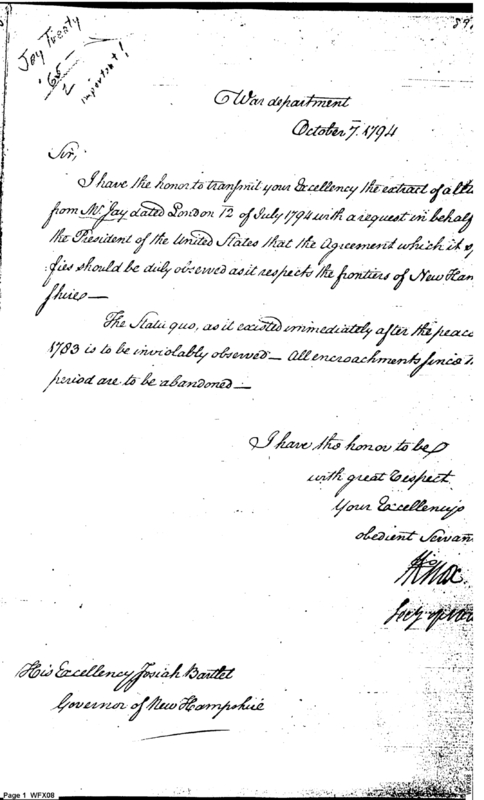 59
Jay Treaty
'65
important!
War department
October 7. 1794
Sir,
I have the honor to transmit your Excellency the extract of a
from Mr Jay dated London 12 of July 1794 with a request in behalf
the President of the United States that the Agreement which it
fies should be duly observed as it respects the frontiers of New Ham
shire—
The Statu quo, as it existed immediately after the peace
1783 is to be inviolably observed— All encroachments since
period are to be abandoned—
I have the honor to be
with great respect
Your Excellency's
obedient Servan
HKnox
Secy of War
His Excellency Josiah Bartlet
Governor of New Hampshire
Page 1 WFX08
WFX08